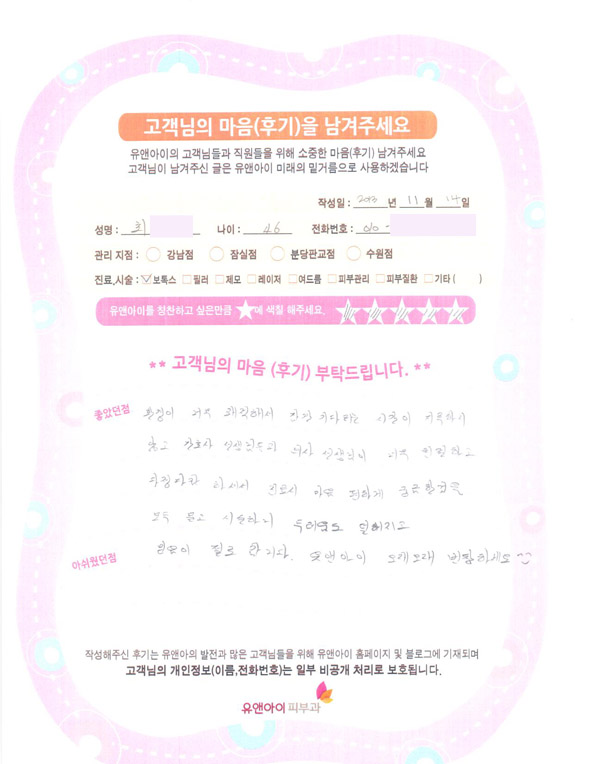 고객님의 마음(후기)을 남겨주세요
유앤아이의 고객님들과 직원들을 위해 소중한 마음(후기) 남겨주세요
고객님이 남겨주신 글은 유앤아이 미래의 밑거름으로 사용하겠습니다
작성일 : 2013 년 11 월 14 일
성명 : 최 나이 : 46 전화번호 : 010 -
관리 지점 : 강남점 잠실점 분당판교점 수원점
진료,시술 : 보톡스 필러 제모 레이저 여드름 피부관리 피부질환 기타 ( )
유앤아이를 칭찬하고 싶은만큼 ★에 색칠 해주세요.
** 고객님의 마음 (후기) 부탁드립니다. **
좋았던점 환경이 너무 쾌적해서 기다리는 시간이
간호사 선생님들과 의사 선생님이 너무 친절하고
진료시 아주 편하게 궁금한것을
모두 묻고 시술하니 두려움도
아쉬웠던점 필요 한지다. 유앤아이 오래오래 번창하세요
작성해주신 후기는 유앤아의 발전과 많은 고객님들을 위해 유앤아이 홈페이지 및 블로그에 기재되며
고객님의 개인정보(이름,전화번호)는 일부 비공개 처리로 보호됩니다.
유앤아이 피부과